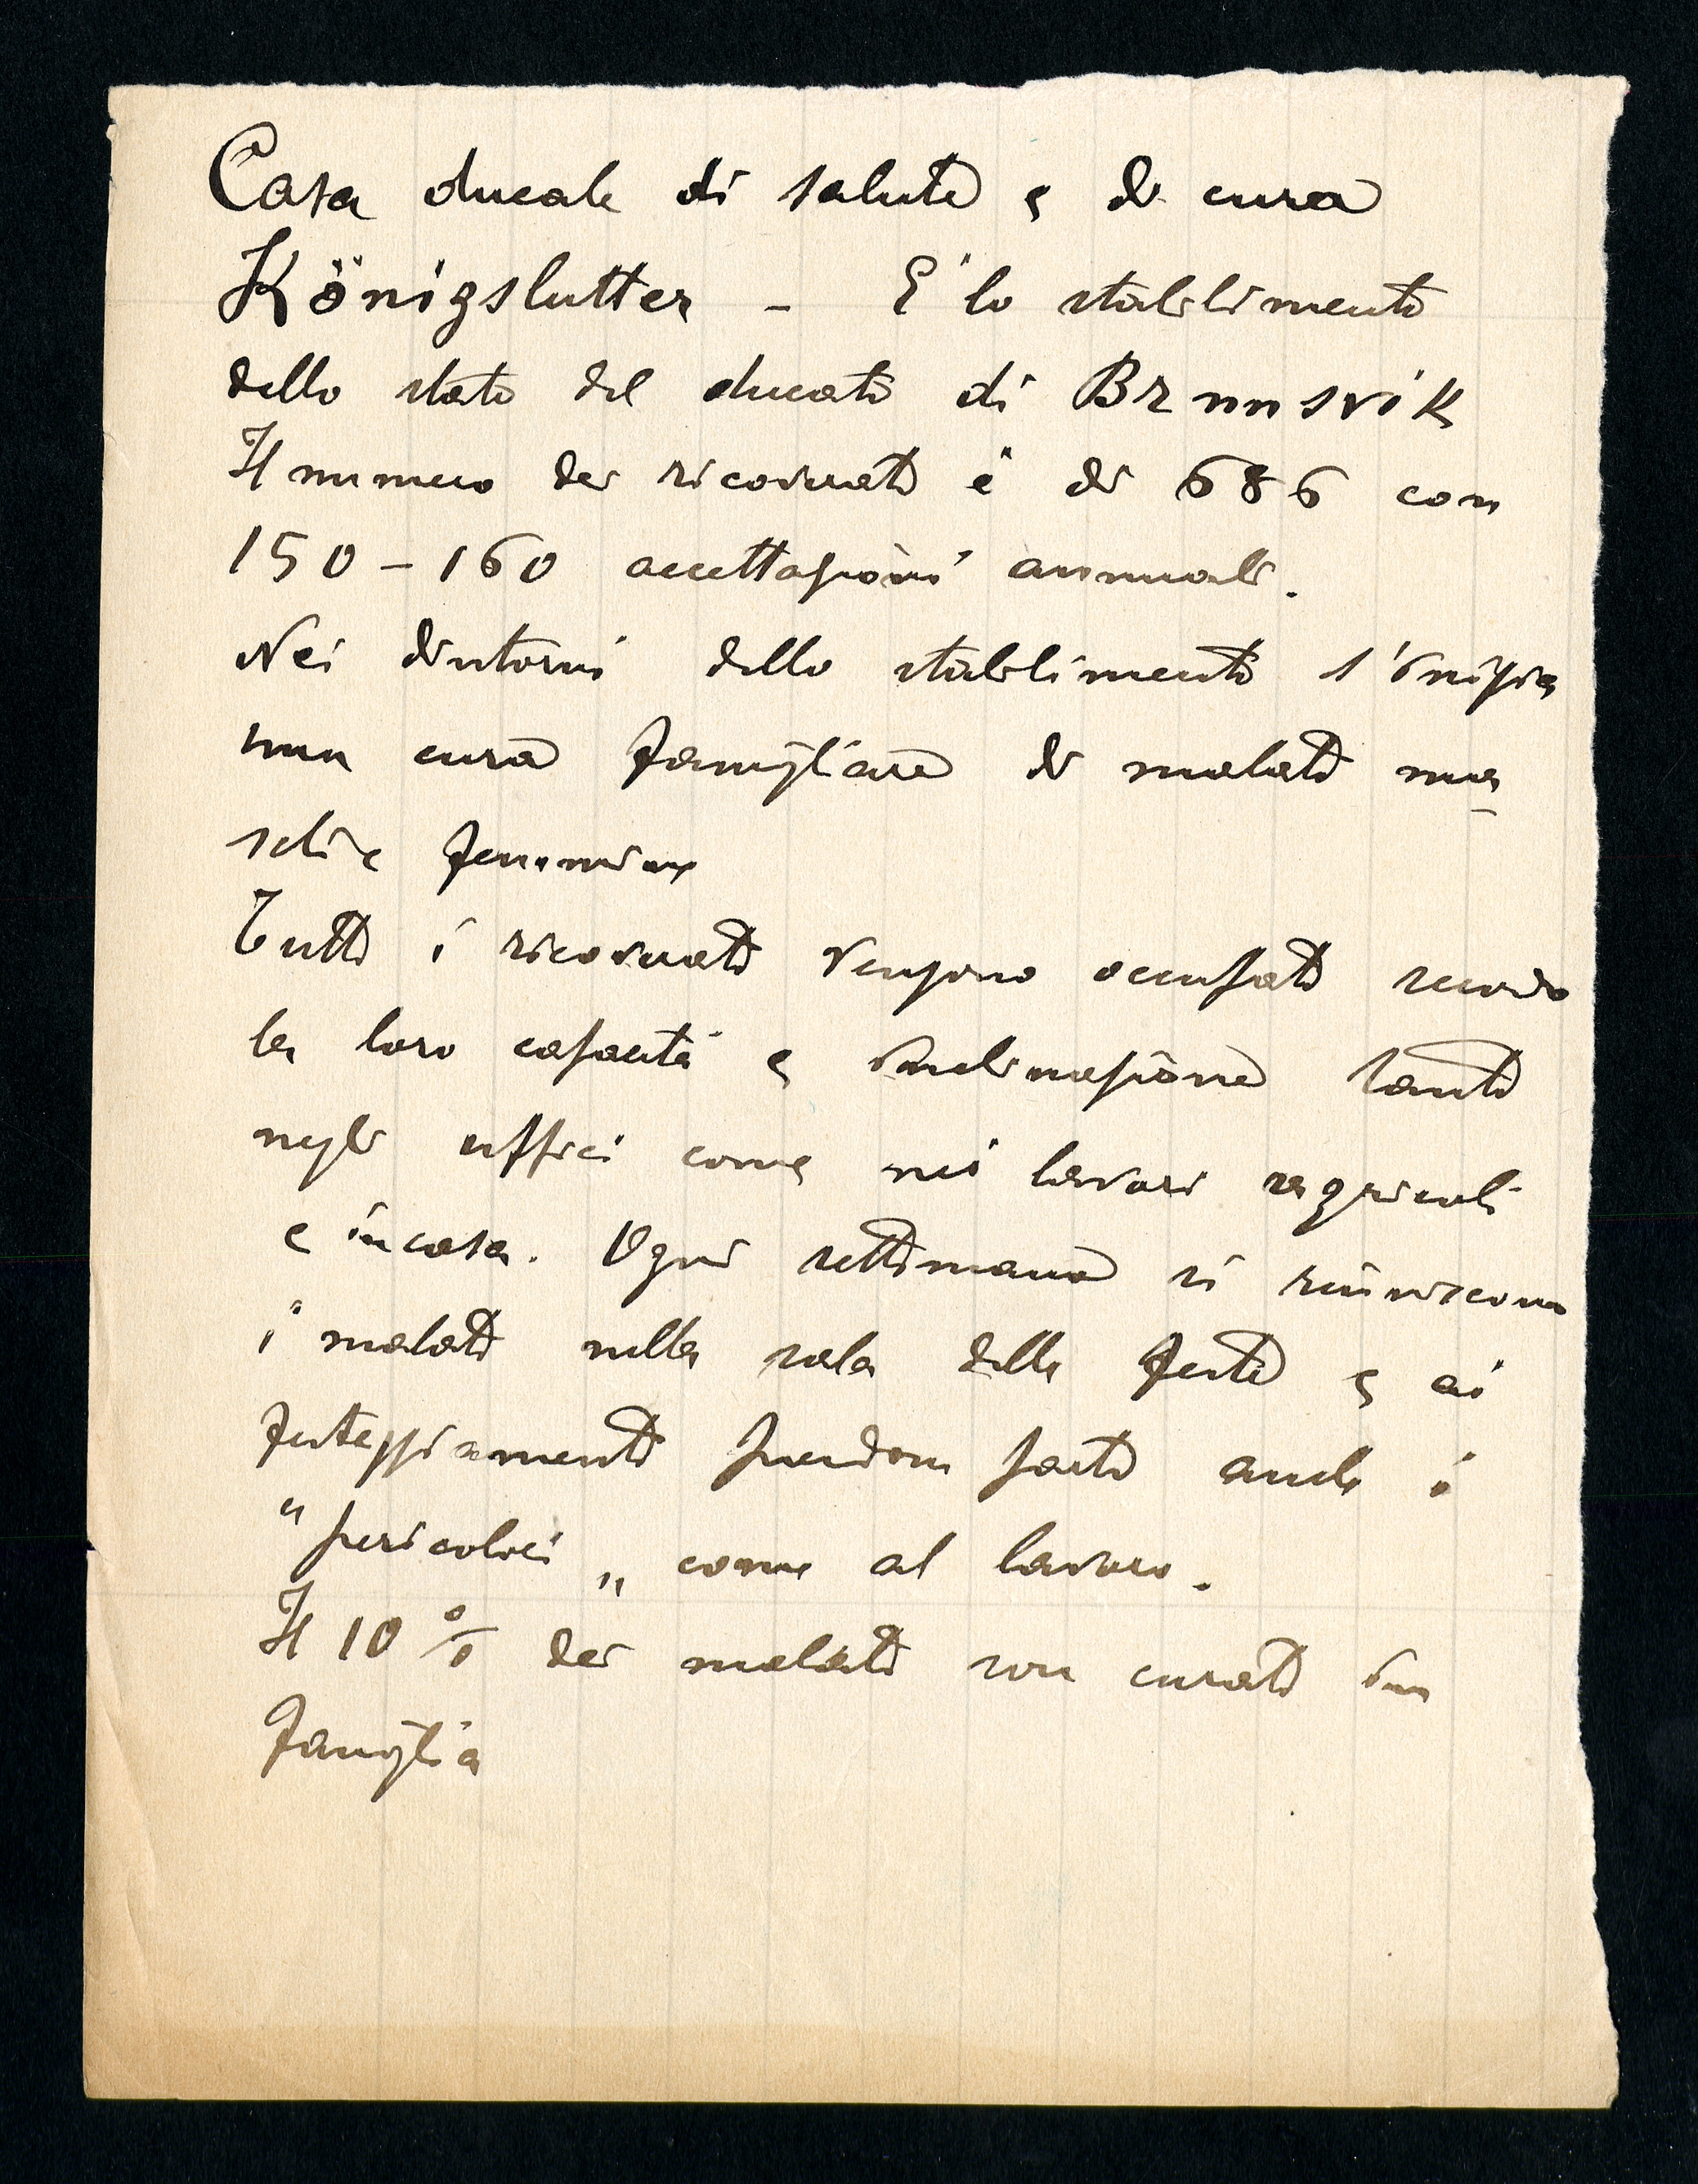 Casa ducale di salute e di cura
Königslutter - E' lo stabilimento
dello stato del ducato di Brunsvik
Il numero dei ricoverati è di 686 con
150-160 accettazioni annuali.
Nei dintorni dello stabilimento s'inizia
una cura famigliare di malati ma-
schi e femmine
Tutti i ricoverati vengono occupati secondo
la loro capacità e inclinazione tanto
negli uffici come nei lavori agricoli
e in casa. Ogni settimana si riuniscono
i malati nella sala delle feste e ai
festeggiamenti prendono parte anche i
"pericolosi" come al lavoro.
Il 10% dei malati son curati in
famiglia